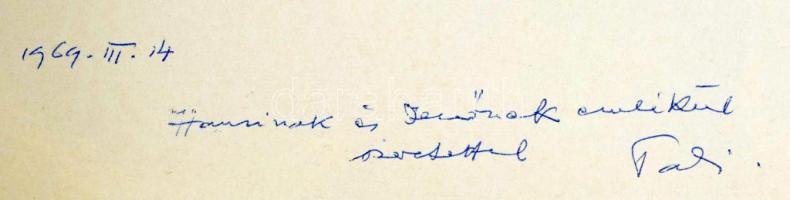 1969. III. 14
Hansinak és Jenőnek emlékül
szeretettel Tabi.